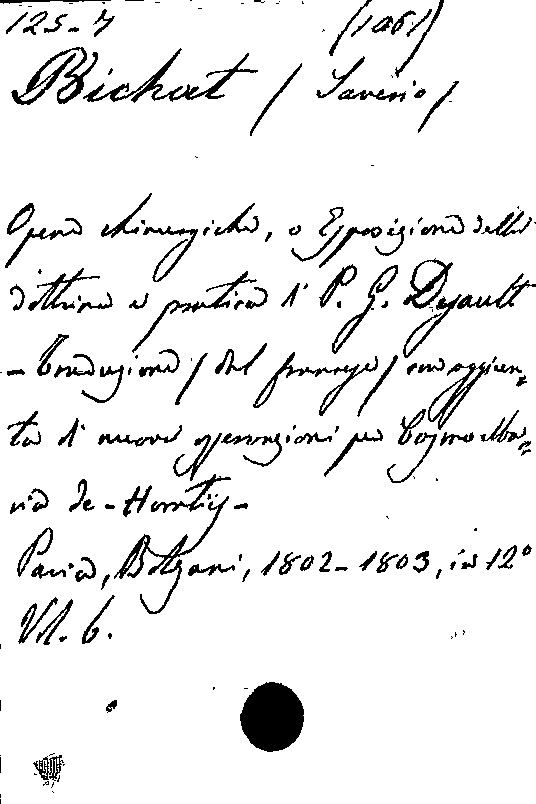 125-7 (1061)
Bichat / Saverio /
Opere chirurgiche, o Esposizione della
dottrina e pratica di P. G. Desault
- Traduzione / dal francese / con aggiun=
ta di nuove osservazioni per Cosmo Ma=
ria de-Horatiis-
Pavia, Bolzani, 1802-1803, in 12°
Vol. 6.